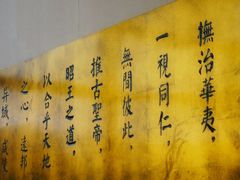 撫治華夷，
一視同仁，
無間彼此，
推古聖帝，
明王之道，
以合乎天地
之心，遠邦
異域，咸